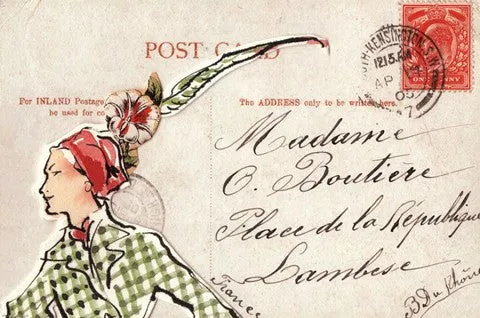 POST CARD
For INLAND Postage
be used for co
The ADDRESS only to be written here.
TH-KENSINGTON.S.W
12.15 AM
AP
05
7
ONE PENNY
Madame
O. Boutière
Place de la République
Lambesc
B. du Rhône
France